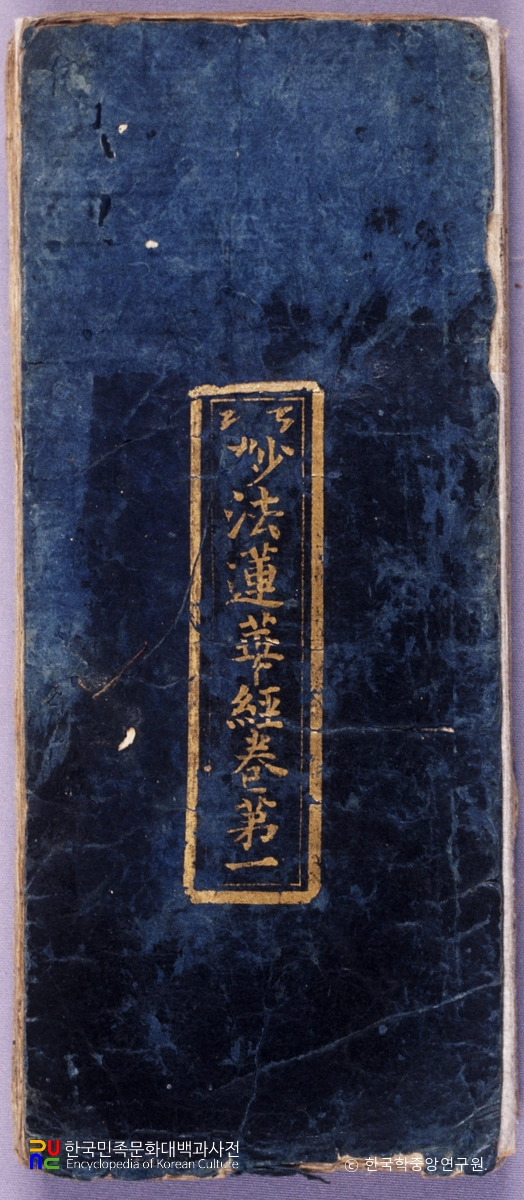 妙法蓮華經卷第一
한국민족문화대백과사전
Encyclopedia of Korean Culture
© 한국학중앙연구원